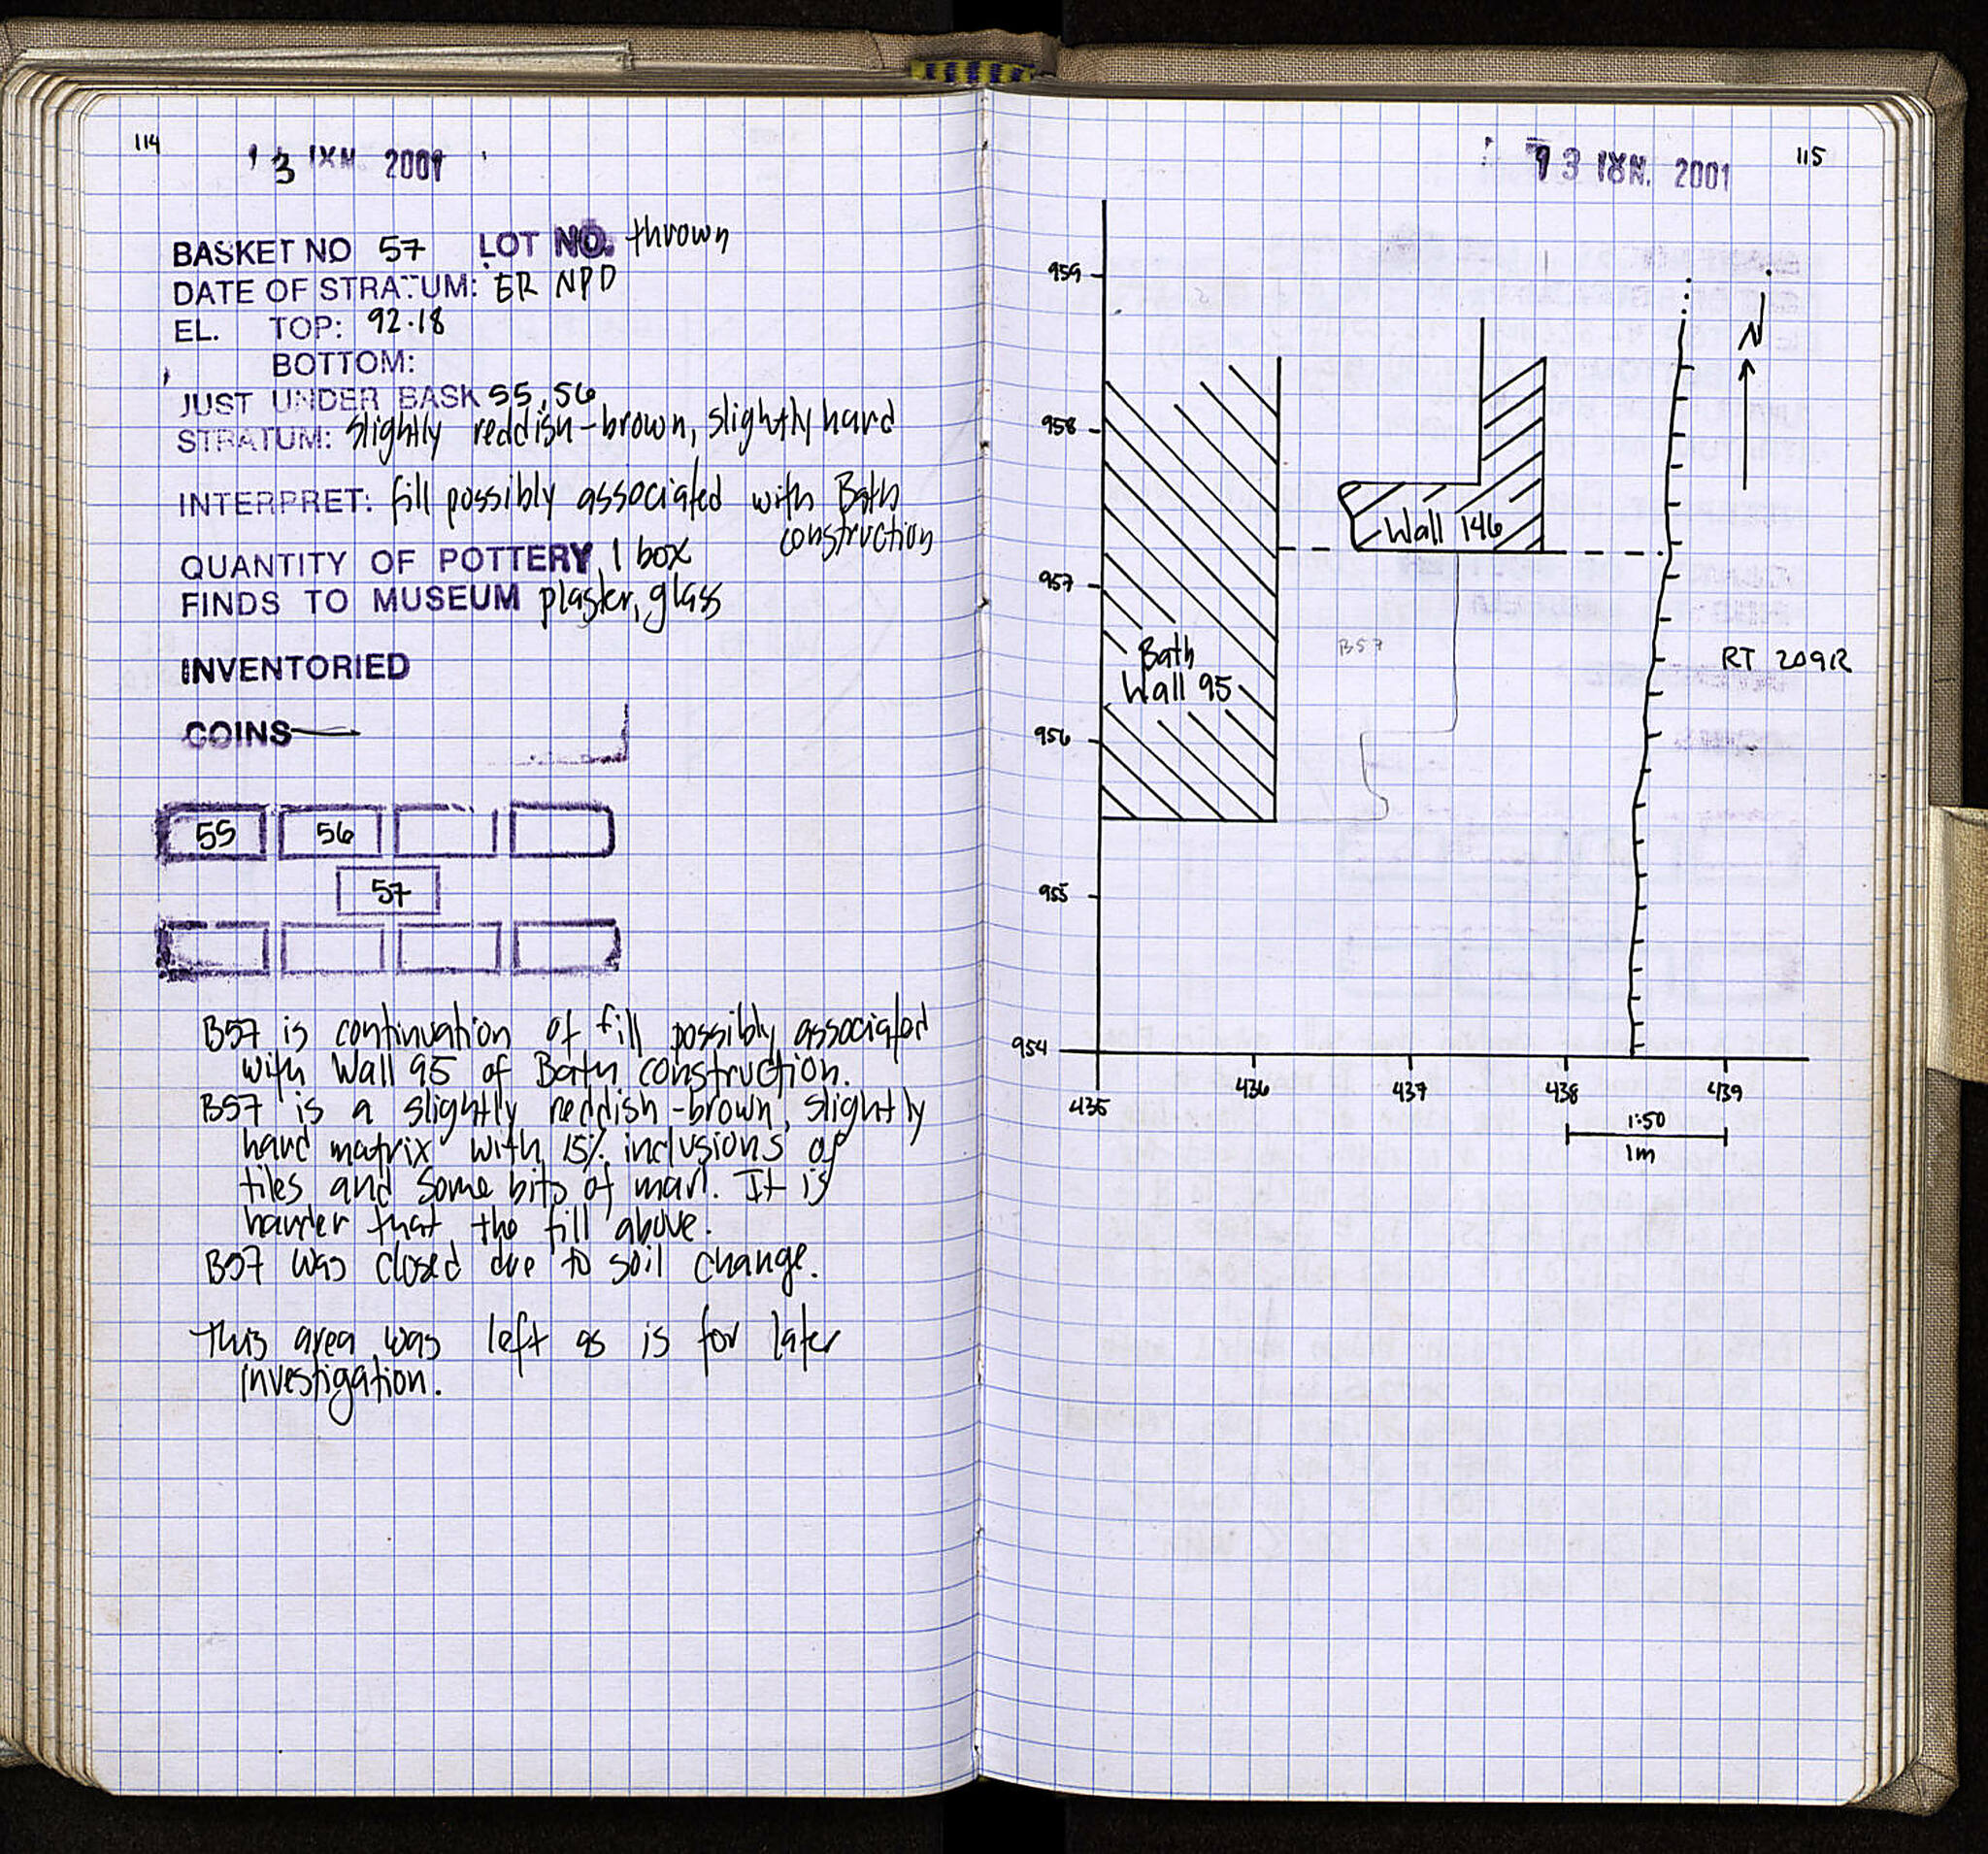 114
13 ΙΧΝ. 2001
BASKET NO 57 LOT NO. thrown
DATE OF STRATUM: ER NPD
EL. TOP: 92.18
BOTTOM:
JUST UNDER BASK 55, 56
STRATUM: slightly reddish-brown, slightly hard
INTERPRET: fill possibly associated with Bath
construction
QUANTITY OF POTTERY 1 box
FINDS TO MUSEUM plaster, glass
INVENTORIED
COINS —
55 56
57
B57 is continuation of fill possibly associated
with Wall 95 of Bath construction.
B57 is a slightly reddish-brown, slightly
hard matrix with 15% inclusions of
tiles and some bits of marl. It is
harder that the fill above.
B57 was closed due to soil change.
This area was left as is for later
investigation.
13 2001
115
959
N
958
Wall 146
957
B57
Bath
Wall 95
RT 209R
956
955
954
435 436 437 438 439
1:50
1m